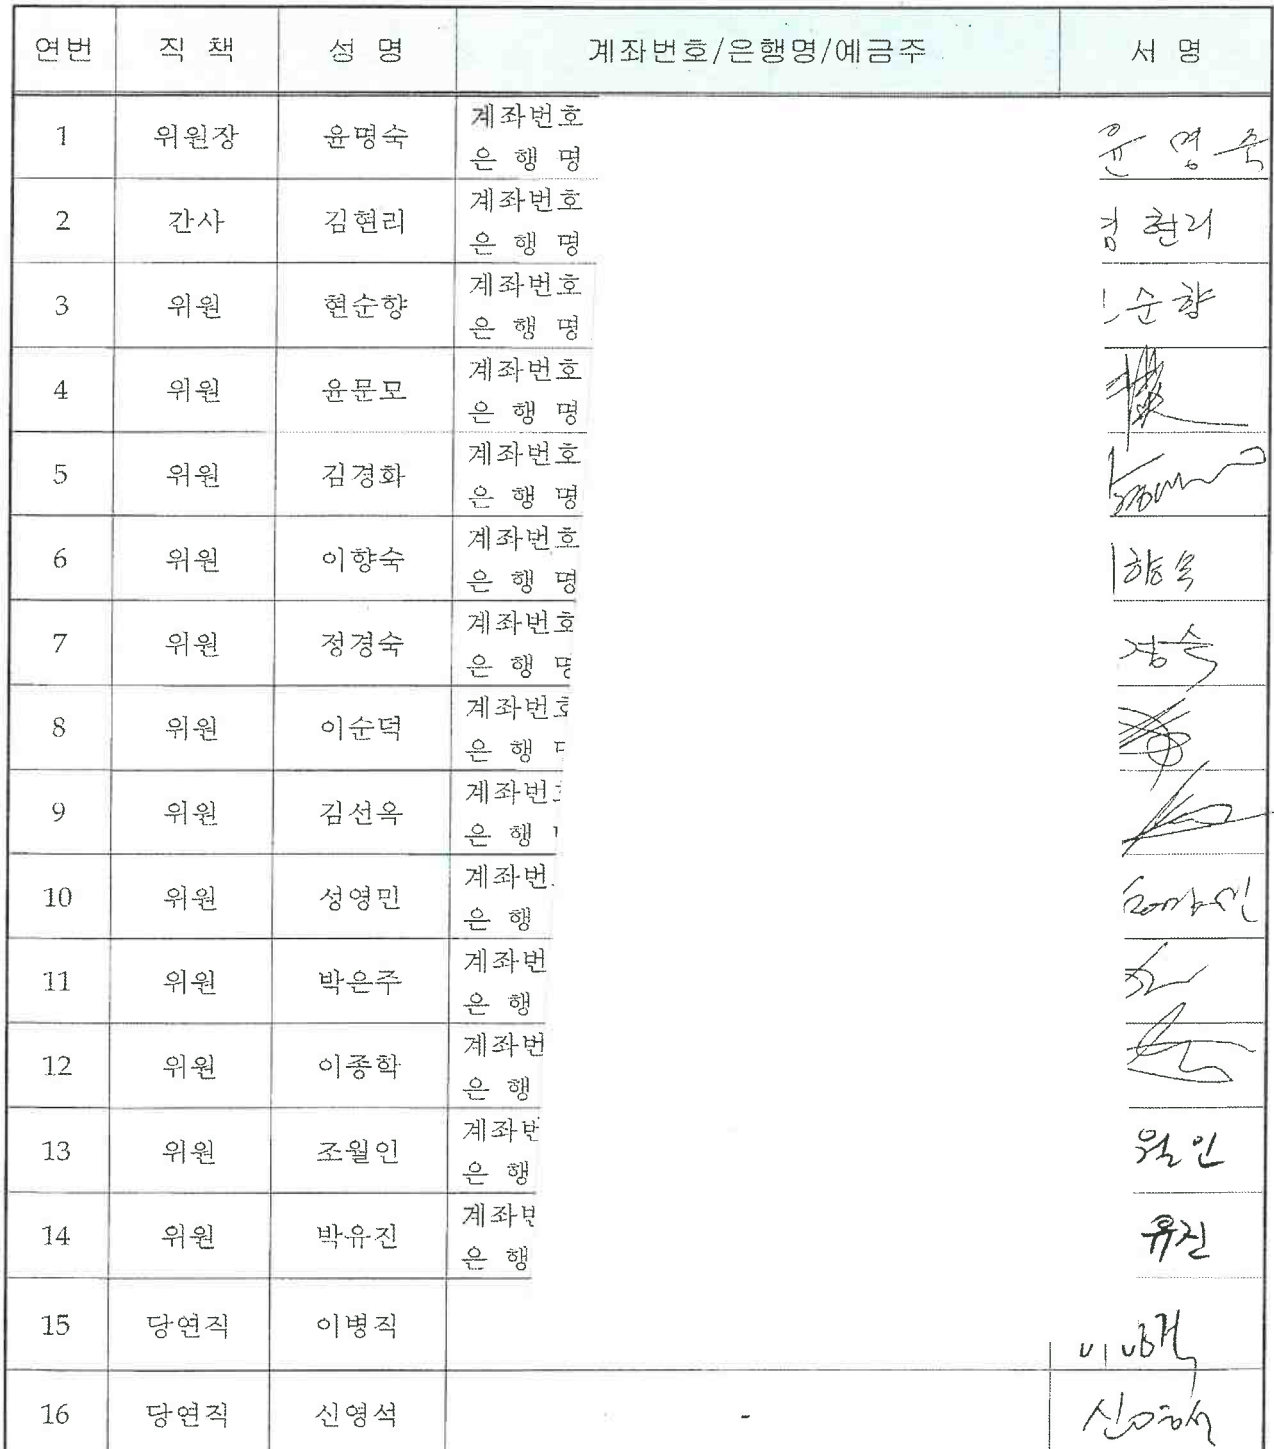 연번 직 책 성 명 계좌번호/은행명/예금주 서 명
1 위원장 윤명숙 계좌번호 윤 명 숙
은 행 명
2 간사 김현리 계좌번호 김 현리
은 행 명
3 위원 현순향 계좌번호 순향
은 행 명
4 위원 윤문모 계좌번호
은 행 명
5 위원 김경화 계좌번호
은 행 명
6 위원 이향숙 계좌번호 이향숙
은 행 명
7 위원 정경숙 계좌번호 경숙
은 행 명
8 위원 이순덕 계좌번호
은 행
9 위원 김선옥 계좌번
은 행
10 위원 성영민 계좌번 성영민
은 행
11 위원 박은주 계좌번
은 행
12 위원 이종학 계좌번
은 행
13 위원 조월인 계좌번 월인
은 행
14 위원 박유진 계좌번 유진
은 행
15 당연직 이병직 이병직
16 당연직 신영석 - 신영석